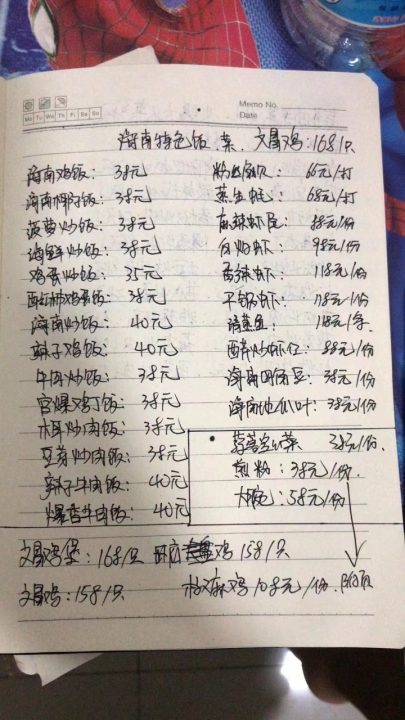 Memo No.
Mo Tu We Th Fr Sa Su
Date
海南特色饭 菜. 文昌鸡:168/只
海南鸡饭: 38元
海南椰子饭: 38元
菠萝炒饭: 38元
海鲜炒饭: 38元
鸡蛋炒饭: 35元
鸡蛋饭: 38元
海南炒饭: 40元
辣子鸡饭: 40元
牛肉炒饭: 38元
宫爆鸡丁饭: 38元
木耳炒肉饭: 38元
豆芽炒肉饭: 38元
辣子牛肉饭: 40元
爆香牛肉饭: 40元
粉丝扇贝: 66元/打
蒸生蚝: 68元/打
麻辣虾尾: 88元/份
白灼虾: 98元/份
香辣虾: 118元/份
干锅虾: 118元/份
清蒸鱼: 118元/条.
西芹炒虾仁: 88元/份
海南四角豆: 38元/份
海南地瓜叶: 38元/份
• 菜 38元/份.
煎粉: 38元/份.
58元/份
文昌鸡煲: 168/只 鸡 158/只
文昌鸡: 158/只
椒麻鸡 108元/份.